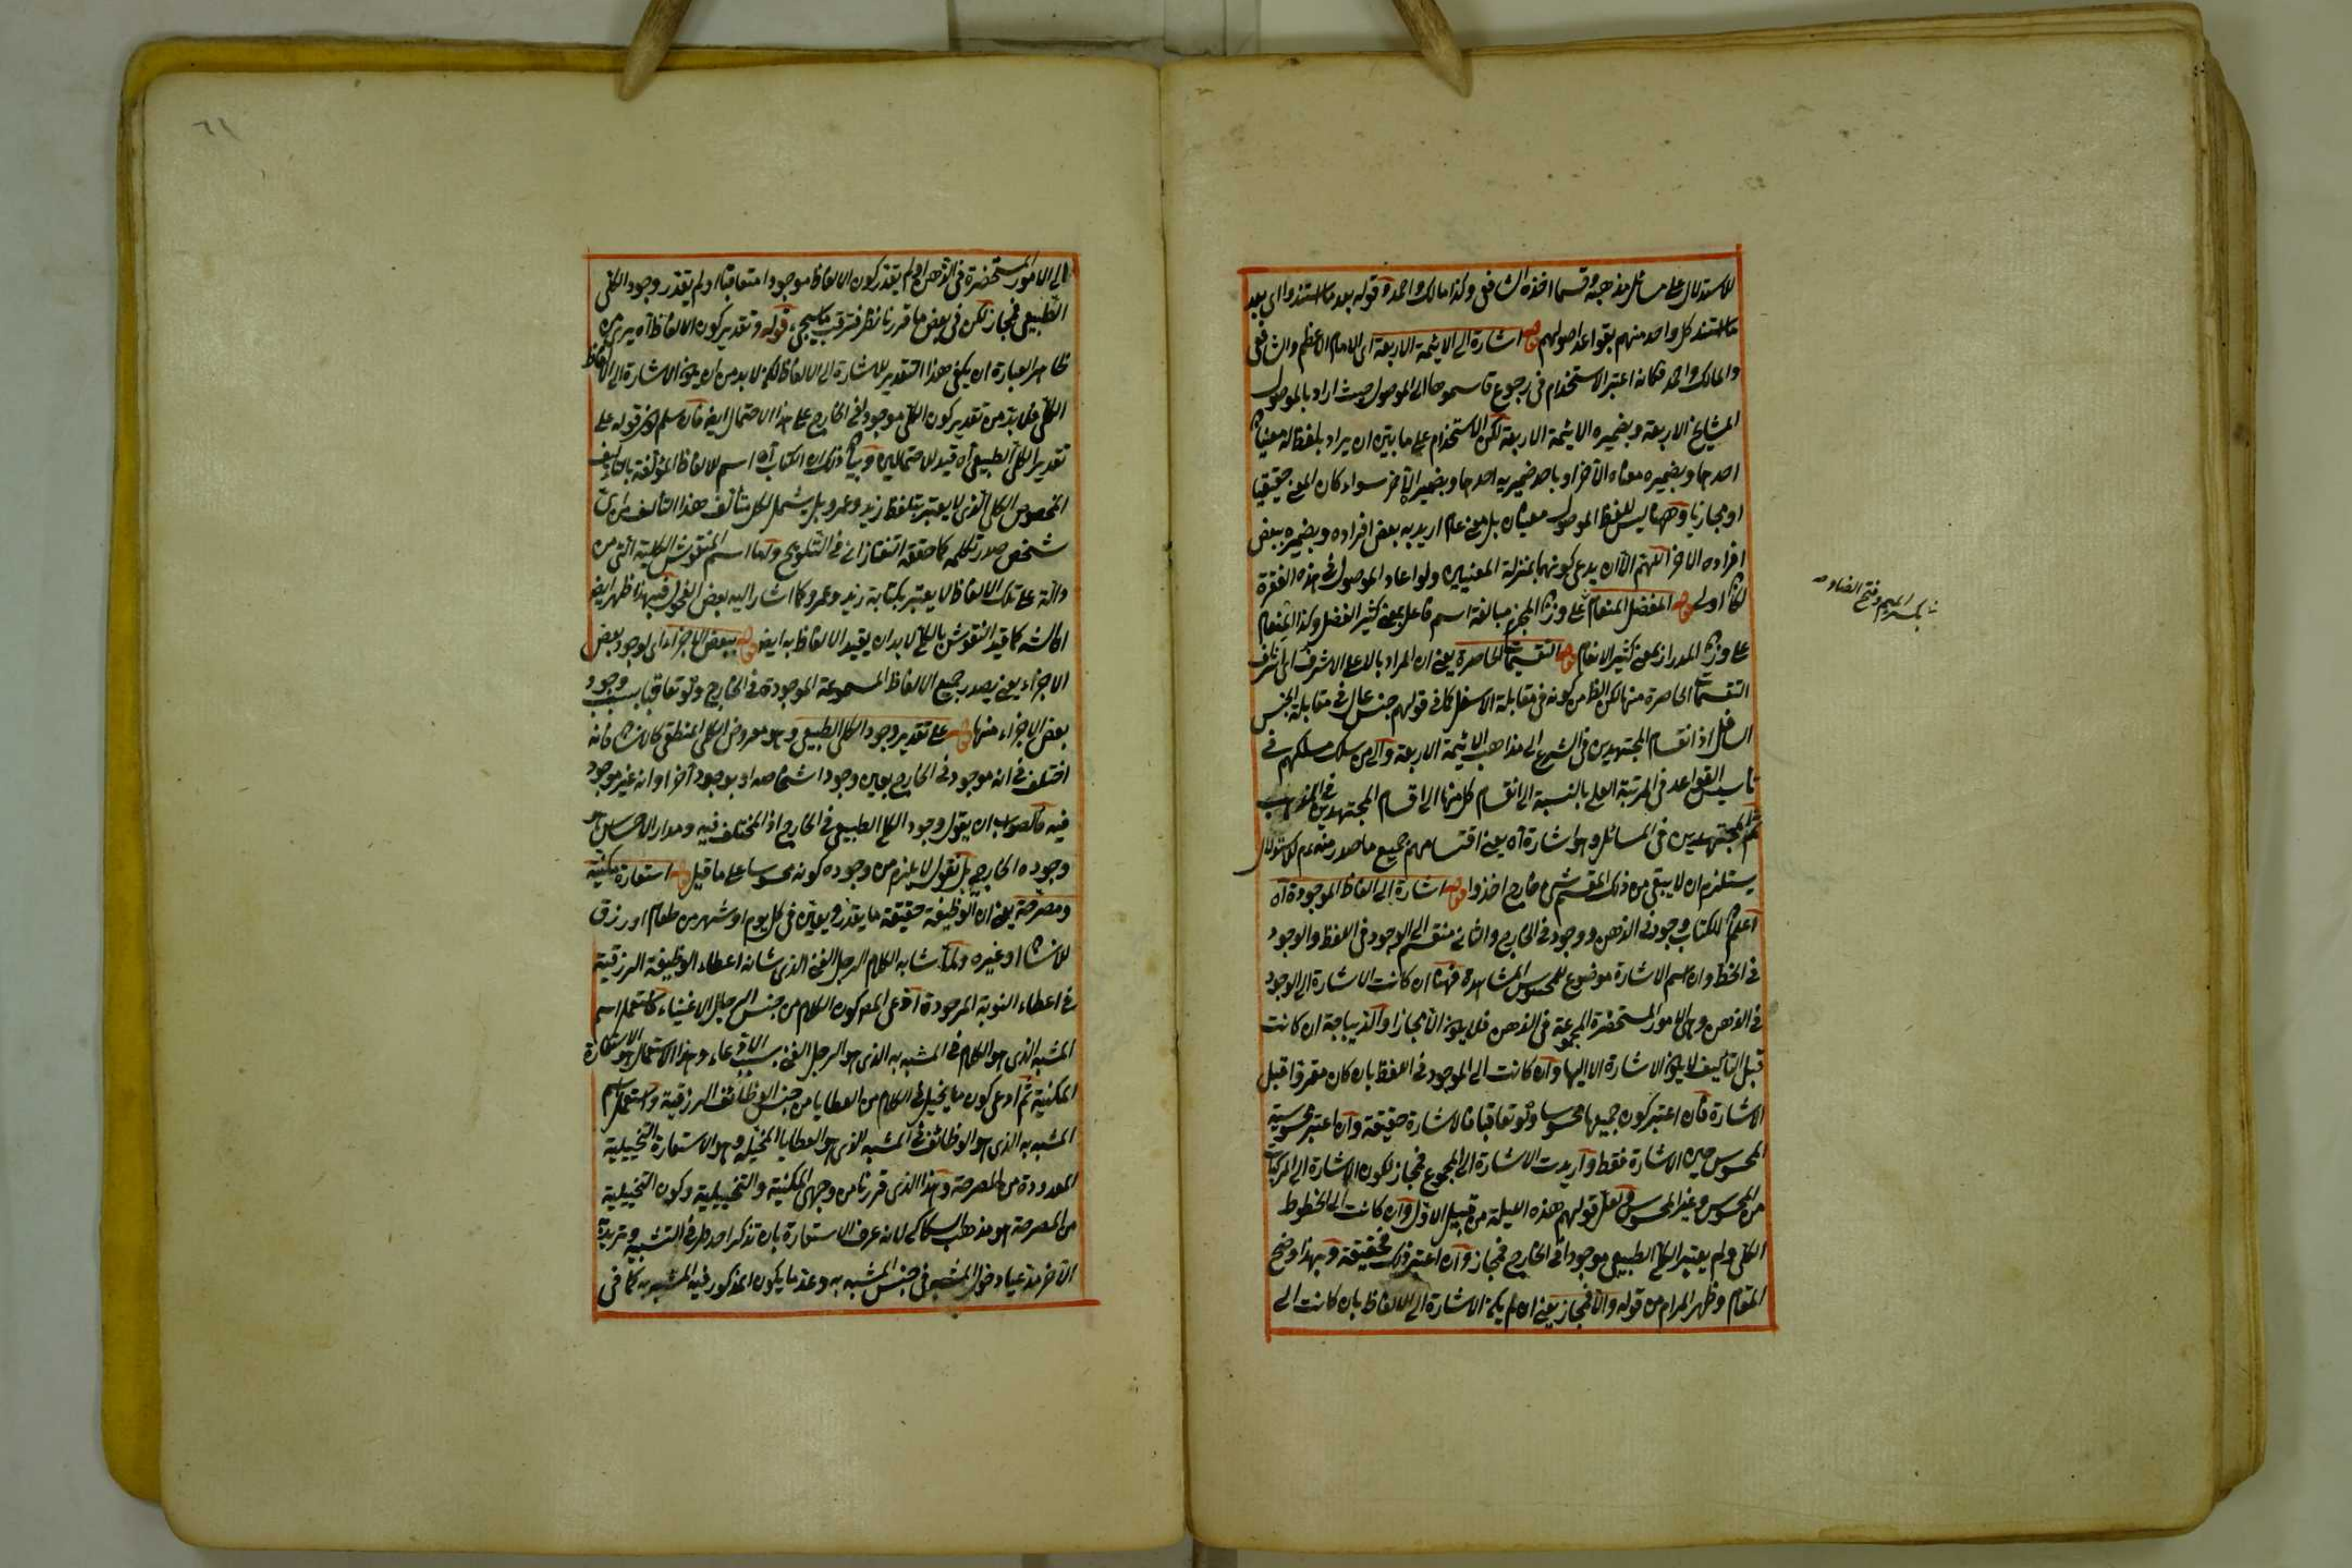 للاستدلال على مسائل مذهبه وقسما اخذه الشافعى وكذا مالك واحمد وقوله بعد ما استندوا اى بعد
ما استند كل واحد منهم بقواعد اصولهم قوله اشارة الى الائمة الاربعة اى الامام الاعظم والشافعى
والمالك واحمد فكانه اعتبر الاستخدام فى رجوع قاسموها الى الموصول حيث اراد بالموصول
المشايخ الاربعة وبضميره الائمة الاربعة لكن الاستخدام على ما بين ان يراد بلفظ له معنيان
احدهما وبضميره معناه الآخر او باحد ضميريه احدهما وبضمير الآخر سواء كان المعنى حقيقيا
او مجازيا وههنا ليس للفظ الموصول معنيان بل معنى عام اريد به بعض افراده وبضميره بعض
افراده الاخر اللهم الا ان يدعى كونهما بمنزلة المعنيين ولو اعاد الموصول فى هذه الفقرة
لكان اولى قوله المفضل المنعام على وزن المجزم مبالغة اسم فاعل بمعنى كثير الفضل وكذا المنعام
بكسر الميم وفتح الضاد
على وزن المدرار بمعنى كثير الانعام قوله التقسيمات الحاصرة يعنى ان المراد بالاعلى الاشرف اى اشرف
التقسيمات الحاصرة منها لكن الظ من كونه فى مقابلة الاسفل كما فى قولهم جنس عال فى مقابلة الجنس
السافل اذ انقسام المجتهدين فى الشرع الى مذاهب الائمة الاربعة والى من سلك مسلكهم فى
تأسيس القواعد فى المرتبة العليا بالنسبة الى انقسام كل منها الى اقسام المجتهدين فى المذهب
ثم المجتهدين فى المسائل وهو اشارة آه يعنى اقتسامهم جميع ما صدر منه عم للاستدلال
يستلزم ان لا يبقى من ذلك المقسم شئ خارج اخذوا قوله اشارة الى الفاظ الموجودة آه
اعلم ان للكتاب وجود فى الذهن ووجود فى الخارج والثانى منقسم الى الوجود فى اللفظ والوجود
فى الخط وان اسم الاشارة موضوع للمحسوس المشاهد فههنا ان كانت الاشارة الى الوجود
فى الذهن وهى الامور المستحضرة المجموعة فى الذهن فلا يكون الا مجازا والديباجة ان كانت
قبل التأليف لا يكون الاشارة الا اليها وان كانت الى الموجود فى اللفظ بان كان مقروا قبل
الاشارة فان اعتبر كون جميعها محسوسا ولو تعاقبا فالاشارة حقيقة وان اعتبر محسوسية
المحسوس حين الاشارة فقط واريدت الاشارة الى المجموع فمجاز لكون الاشارة الى المركبات
من المحسوس وغير المحسوس ولعل قولهم هذه الليلة من قبيل الاول وان كانت الى الخطوط
الكلى ولم يعتبر الكلى الطبيعى موجودا فى الخارج فمجاز وان اعتبر ذلك فحقيقة وبهذا وضح
المقام وظهر المرام من قوله والا فمجاز يعنى ان لم يكن الاشارة الى الالفاظ بان كانت الى
٦١
الى الامور المستحضرة فى الذهن او لم يقدر كون الالفاظ موجودا متعاقبا او لم يقدر وجود الكلى
الطبيعى فمجاز لكن فى بعض ما قررنا نظر فترقب ما سيجئ قوله وتقدير كون الالفاظ آه يريد من
ظاهر العبارة ان يكفى هذا التقدير للاشارة الى الالفاظ لكن لا بد من ان يكون الاشارة الى الالفاظ
الكلى فلا بد من تقدير كون الكلى موجودا فى الخارج على هذا الاحتمال ايضا فان سلم كون قوله على
تقدير الكلى الطبيعى آه قيد للاحتمالين وبيان ذلك ان الكتاب آه اسم للالفاظ المؤلفة بالتأليف
المخصوص الكلى الذى لا يعتبر بتلفظ زيد وعمرو بل يشمل لكل متألف هذا التأليف من اى
شخص صدر تكلمه كما حققه التفتازانى فى التلويح واما اسم النقوش الكلية التى من
دالة على تلك الالفاظ لا يعتبر بكتابة زيد وعمرو كما اشار اليه بعض الفحول فبهذا ظهر ايضا
انه كما قيد النقوش بالكلى لا بد ان يقيد الالفاظ به ايضا قوله ببعض الاجزاء اى لوجود بعض
الاجزاء يعنى يصدر جميع الالفاظ المسموعة الموجودة فى الخارج ولو تعاقبا بسبب وجود
بعض الاجزاء منها قوله على تقدير وجود الكلى الطبيعى وهو معروض الكلى المنطقى كالانسان فانه
اختلف فى انه موجود فى الخارج بعين وجود اشخاصه او بوجود آخر او انه غير موجود
فيه فالصواب ان يقول وجود الكلى الطبيعى فى الخارج اذ المختلف فيه ومدار الاحساس هو
وجوده الخارجى بل نقول لا يلزم من وجوده كونه محسوسا على ما قيل قوله استعارة مكنية
ومصرحة يعنى ان الوظيفة حقيقة ما يقدر ويعين فى كل يوم او شهر من طعام او رزق
للانسان او غيره ولما شابه الكلام الرجل الغنى الذى شانه اعطاء الوظيفة الرزقية
فى اعطاء النوبة المرجودة ادعى المص كون الكلام من جنس الرجال الاغنياء فاستعمل اسم
المشبه الذى هو الكلام فى المشبه به الذى هو الرجل الغنى بسبب الادعاء وهذا الاستعمال هو الاستعارة
المكنية ثم ادعى كون ما يخيل فى الكلام من العطايا من جنس الوظائف الرزقية واستعمل اسم
المشبه به الذى هو الوظائف فى المشبه الذى هو العطايا المخيلة وهو الاستعارة التخييلية
المعدودة من المصرحة وهذا الذى قررنا من وجهى المكنية والتخييلية وكون التخييلية
من المصرحة هو مذهب السكاكى لانه عرف الاستعارة بان تذكر احد طرفى التشبيه وتريد به
الآخر مدعيا دخول المشبه فى جنس المشبه به وعنده ما يكون المذكور فيه المشبه به كما فى